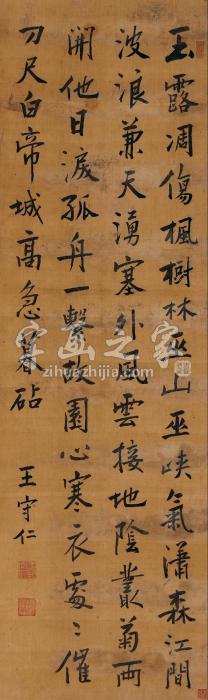 玉露凋傷楓樹林巫山巫峽氣瀟森江間
波浪兼天湧塞外風雲接地陰叢菊兩
開他日淚孤舟一繫故園心寒衣處〻催
刀尺白帝城高急暮砧
王守仁
字画之家
zihuezhijia.com